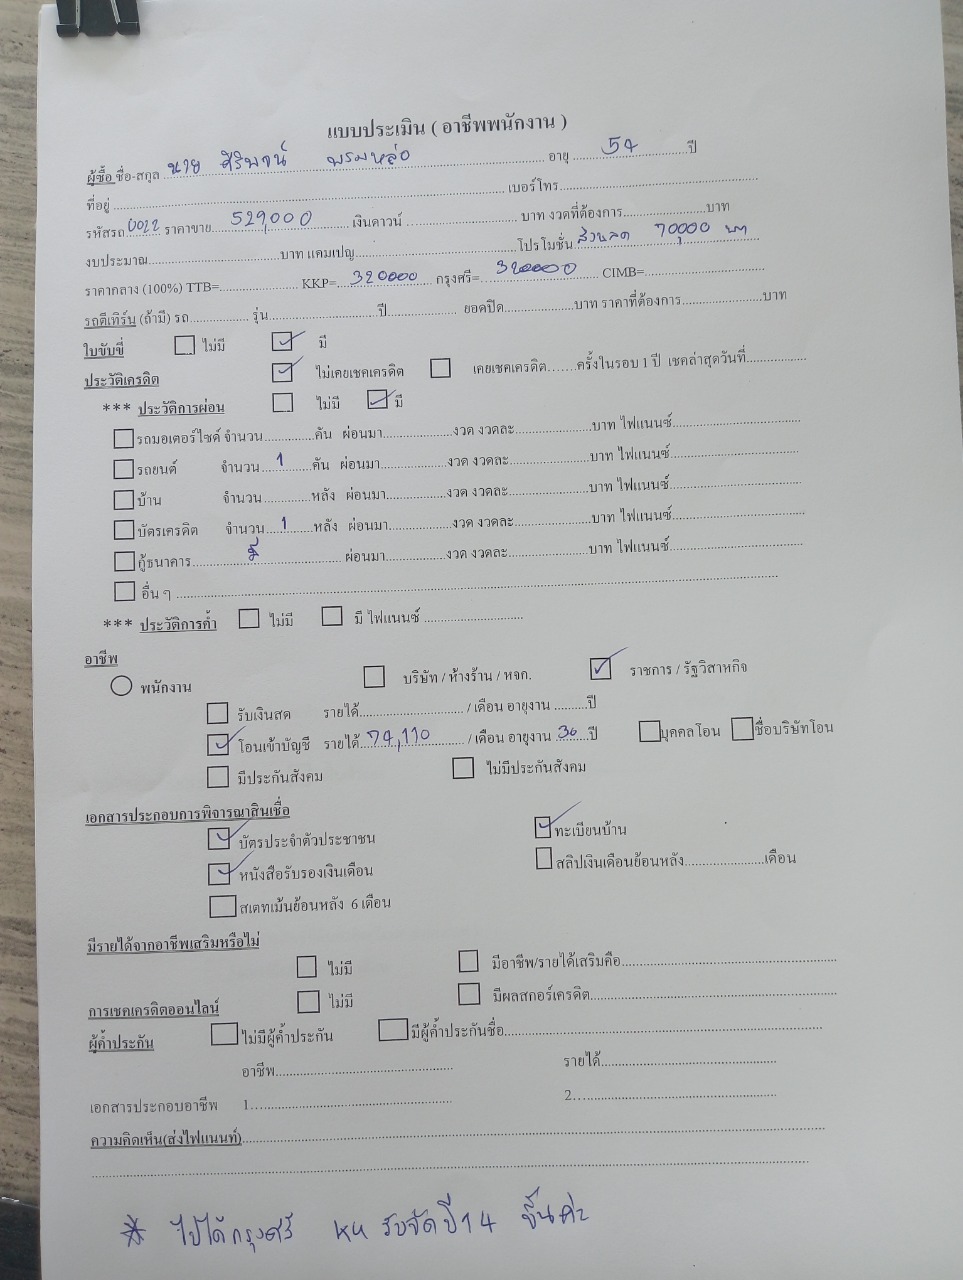 แบบประเมิน ( อาชีพพนักงาน )
ผู้ซื้อ ชื่อ-สกุล นาย ศิริพจน์ พรมหล่อ อายุ 54 ปี
ที่อยู่ เบอร์โทร
รหัสรถ 0022 ราคาขาย 529,000 เงินดาวน์ บาท งวดที่ต้องการ บาท
งบประมาณ บาท แคมเปญ โปรโมชั่น ส่วนลด 70,000 บาท
ราคากลาง (100%) TTB= KKP= 320000 กรุงศรี= 320000 CIMB=
รถตีเทิร์น (ถ้ามี) รถ รุ่น ปี ยอดปิด บาท ราคาที่ต้องการ บาท
ใบขับขี่ ไม่มี มี
ประวัติเครดิต ไม่เคยเชคเครดิต เคยเชคเครดิต ครั้งในรอบ 1 ปี เชคล่าสุดวันที่
*** ประวัติการผ่อน ไม่มี มี
รถมอเตอร์ไซค์ จำนวน คัน ผ่อนมา งวด งวดละ บาท ไฟแนนซ์
รถยนต์ จำนวน 1 คัน ผ่อนมา งวด งวดละ บาท ไฟแนนซ์
บ้าน จำนวน หลัง ผ่อนมา งวด งวดละ บาท ไฟแนนซ์
บัตรเครดิต จำนวน 1 หลัง ผ่อนมา งวด งวดละ บาท ไฟแนนซ์
กู้ธนาคาร มี ผ่อนมา งวด งวดละ บาท ไฟแนนซ์
อื่น ๆ
*** ประวัติการค้ำ ไม่มี มี ไฟแนนซ์
อาชีพ
พนักงาน บริษัท / ห้างร้าน / หจก. ราชการ / รัฐวิสาหกิจ
รับเงินสด รายได้ / เดือน อายุงาน ปี
โอนเข้าบัญชี รายได้ 74,110 / เดือน อายุงาน 30 ปี บุคคลโอน ชื่อบริษัทโอน
มีประกันสังคม ไม่มีประกันสังคม
เอกสารประกอบการพิจารณาสินเชื่อ
บัตรประจำตัวประชาชน ทะเบียนบ้าน
หนังสือรับรองเงินเดือน สลิปเงินเดือนย้อนหลัง เดือน
สเตทเม้นย้อนหลัง 6 เดือน
มีรายได้จากอาชีพเสริมหรือไม่
ไม่มี มีอาชีพ/รายได้เสริมคือ
การเชคเครดิตออนไลน์ ไม่มี มีผลสกอร์เครดิต
ผู้ค้ำประกัน ไม่มีผู้ค้ำประกัน มีผู้ค้ำประกันชื่อ
อาชีพ รายได้
เอกสารประกอบอาชีพ 1. 2.
ความคิดเห็น(ส่งไฟแนนท์)
* ไปได้กรุงศรี KK รับจัดปี 14 ขึ้นค่ะ